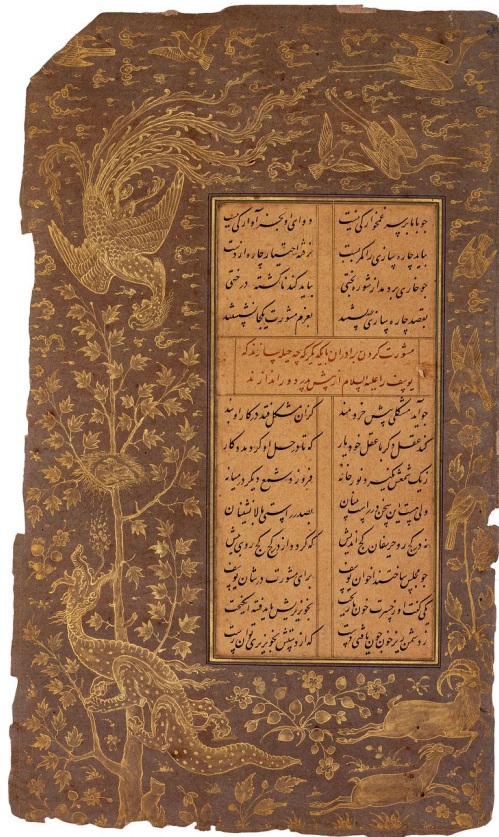 چو با ما بر سر غمخوارگی نیست دوای او بجز آوارگی نیست
بباید چاره سازی را کمر بست نرفته اختیار چاره از دست
چو خاری بردمد از شوره بختی بباید کند ناگشته درختی
بقصد چاره سازی بعزم مشورت یکجا نشستند
مشورت کردن برادران با یکدیگر که چه حیله سازند که
یوسف را علیه السلام از پیش پدر دور اندازند
چو آید مشکلی پیش خردمند کز آن مشکل فتد در کار او بند
کند عقل دگر با عقل خود یار که تا در حل او گردد مددکار
ز یک شمعش نگیرد نور خانه فروزد شمع دیگر در میانه
ولی هست این سخن در راست بینان بصدر راستی بالا نشینان
نه در کج رو حریفان کج اندیش که گردد از دو کج کج روی بیش
چو مجلس ساختند اخوان یوسف برای مشورت در شان یوسف
یکی گفتا ز حسرت خون ما ریخت بخونریزیش باید فتنه انگیخت
ز دشمن خون چون یافتی دست که از بخونریزی توان رست